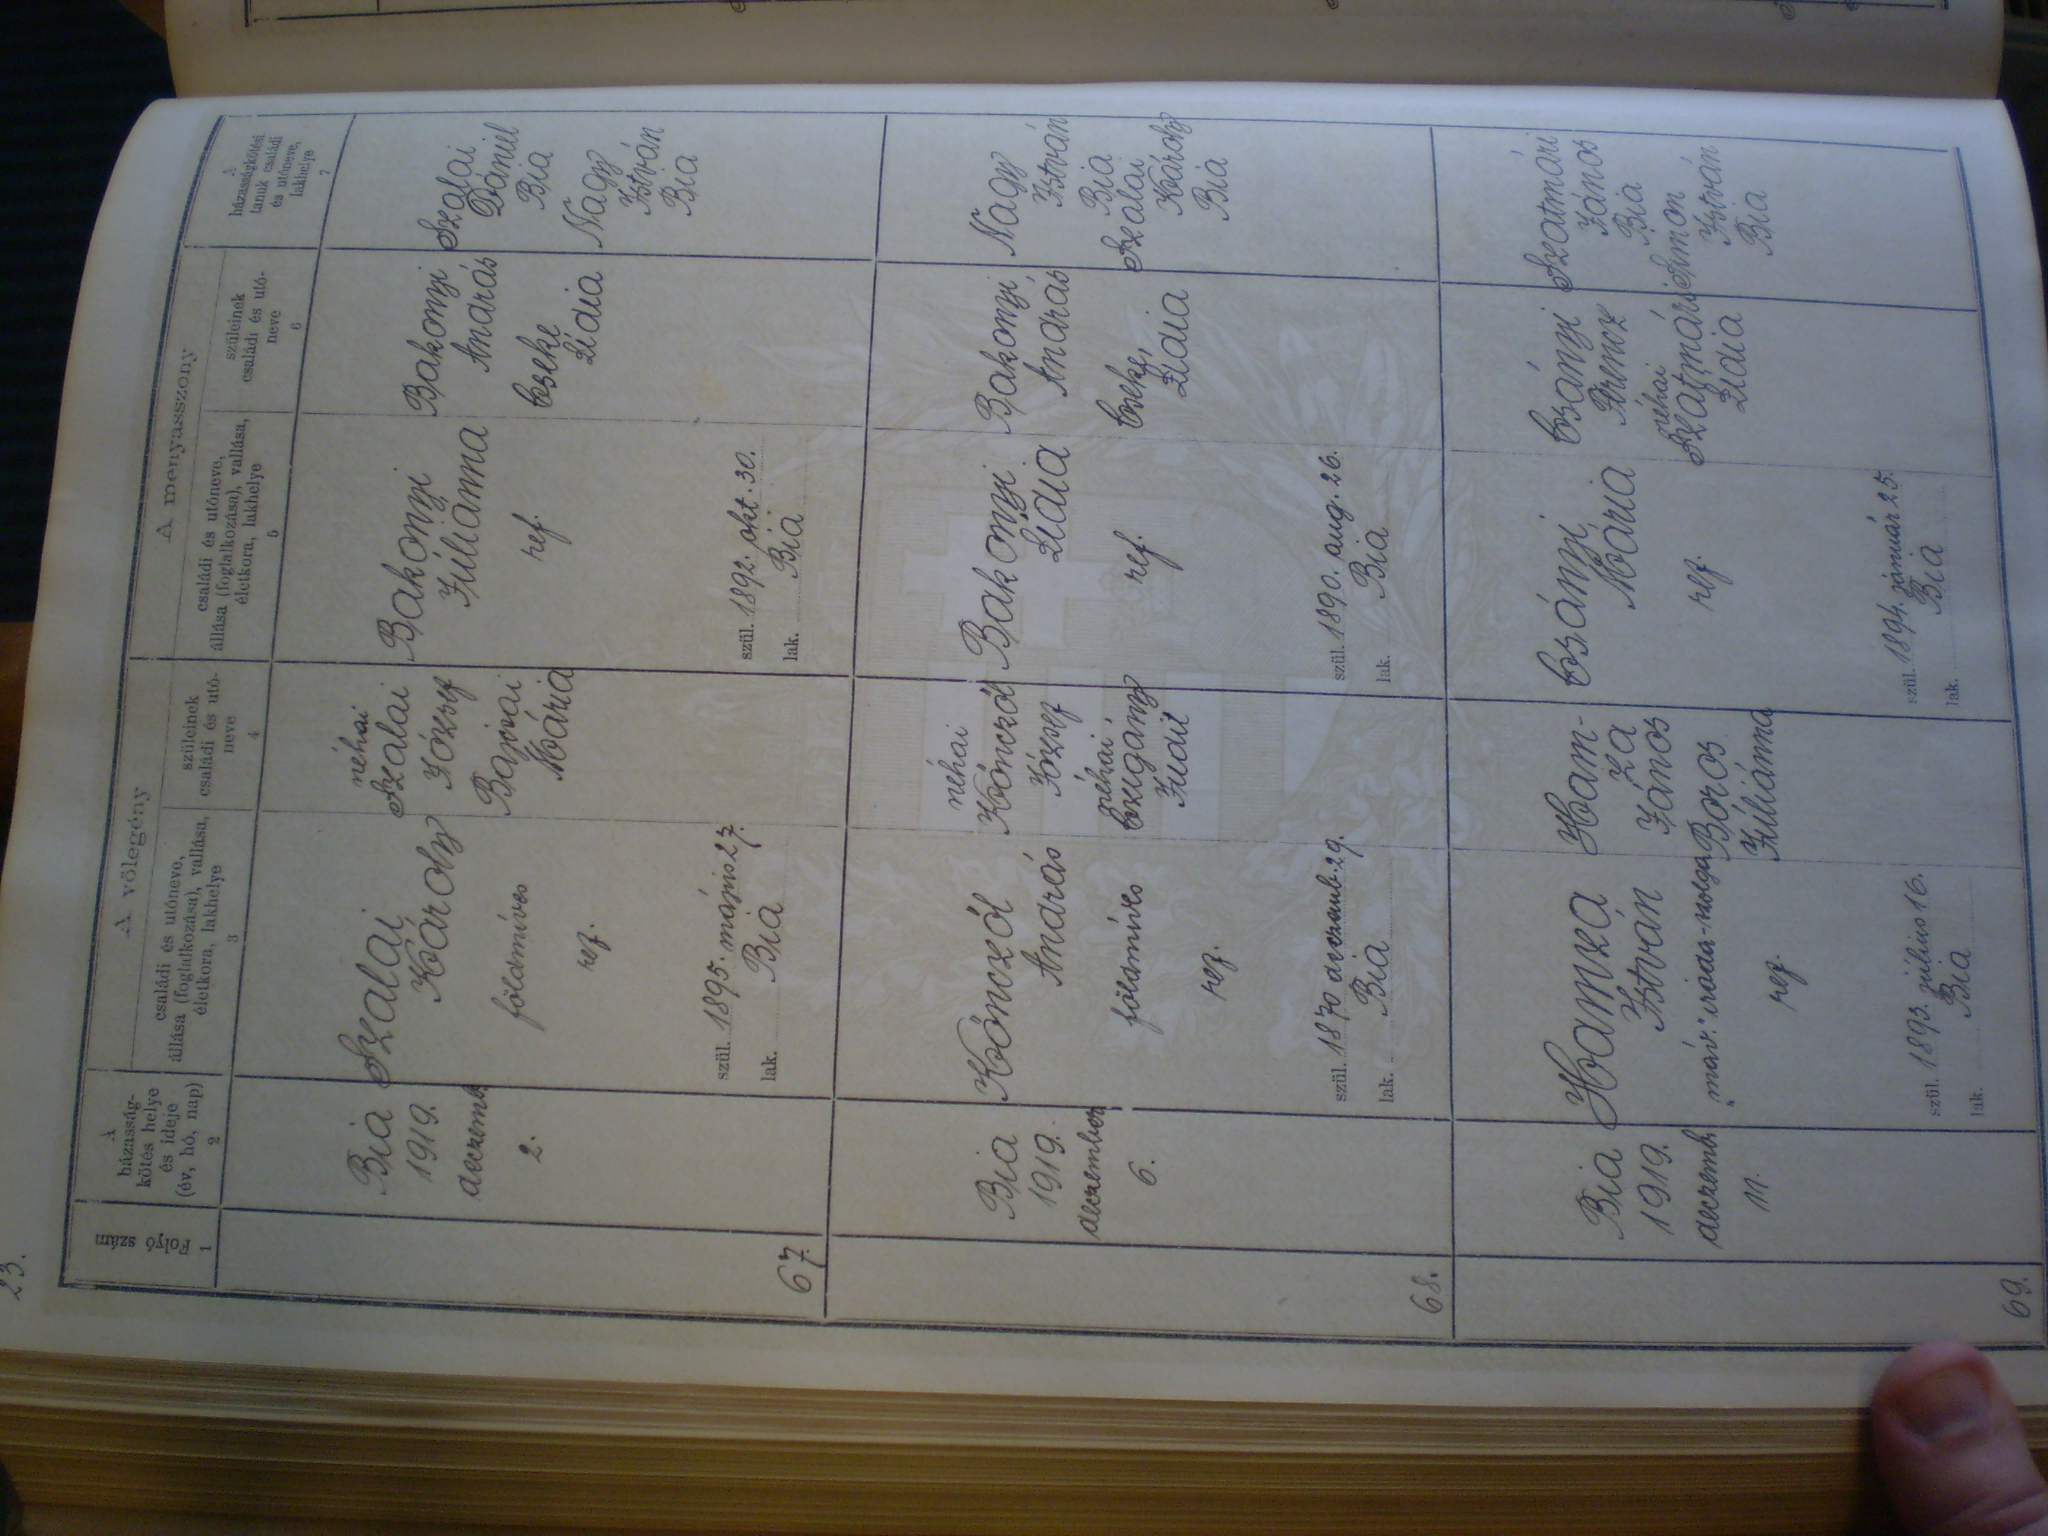 23.
1
Folyó szám
A
házasság-
kötés helye
és ideje
(év, hó, nap)
2
A vőlegény
családi és utóneve,
állása (foglalkozása), vallása,
életkora, lakhelye
3
szüleinek
családi és utó-
neve
4
A menyasszony
családi és utóneve,
állása (foglalkozása), vallása,
életkora, lakhelye
5
szüleinek
családi és utó-
neve
6
A
házasságkötési
tanuk családi
és utóneve,
lakhelye
7
67.
Bia
1919.
deczemb.
2.
Szalai
Károly
földmíves
ref.
szül. 1895. május 27.
lak. Bia
néhai
Szalai
József
Bajnai
Mária
Bakonyi
Juliánna
ref.
szül. 1892. okt. 30.
lak. Bia
Bakonyi
András
Cseke
Lidia
Szalai
Dániel
Bia
Nagy
István
Bia
68.
Bia
1919.
deczember
6.
Kónczól
András
földmíves
ref.
szül. 1870 deczemb. 29.
lak. Bia
néhai
Kónczól
József
néhai
Czigány
Judit
Bakonyi
Lidia
ref.
szül. 1890. aug. 26.
lak. Bia
Bakonyi
András
Cseke
Lidia
Nagy
István
Bia
Szalai
Károly
Bia
69.
Bia
1919.
deczemb.
11.
Hamza
István
"máv." iroda-szolga
ref.
szül. 1893. július 16.
lak. Bia
Ham-
za
János
Boros
Juliánna
Csányi
Mária
ref.
szül. 1894. január 25.
lak. Bia
Csányi
Ferencz
néhai
Szatmári
Lidia
Szatmári
János
Bia
Simon
István
Bia